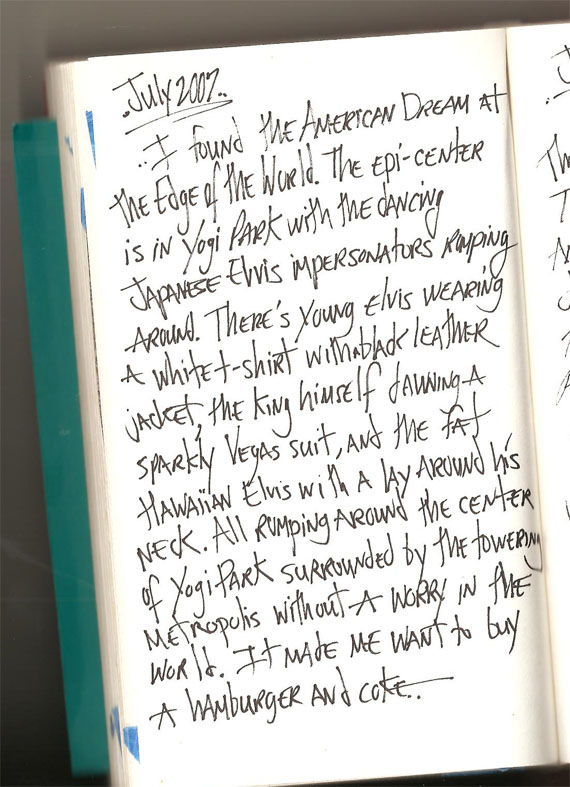 .July 2007..
..I found the American Dream at
the Edge of the World. The epi-center
is in Yogi Park with the dancing
Japanese Elvis impersonators romping
around. There's Young Elvis wearing
a white t-shirt with a black leather
jacket, the King himself dawning a
sparkly Vegas suit, and the fat
Hawaiian Elvis with a lay around his
neck. All romping around the center
of Yogi Park surrounded by the towering
metropolis without a worry in the
world. It made me want to buy
a hamburger and coke..
Th